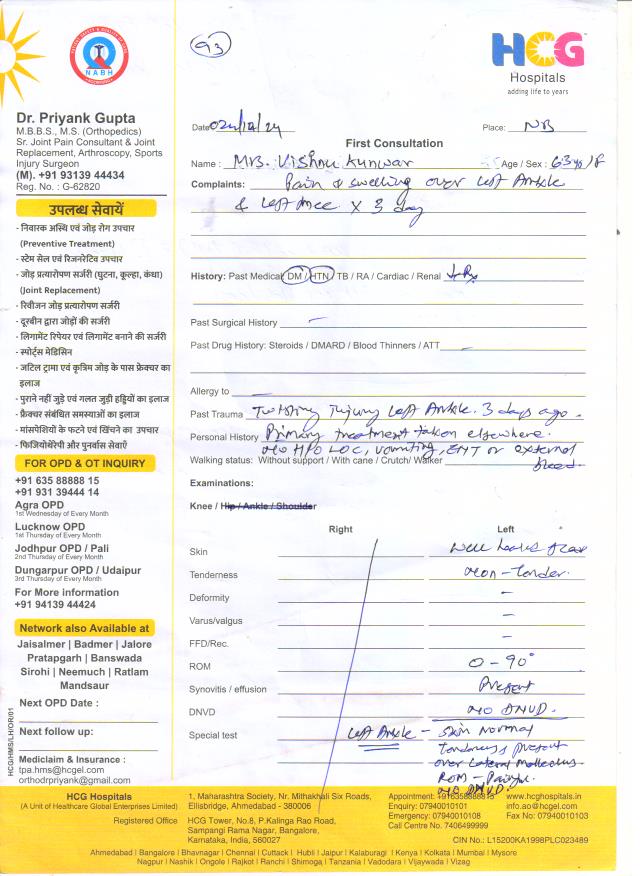 93
NABH
HCG
Hospitals
adding life to years
Dr. Priyank Gupta
M.B.B.S., M.S. (Orthopedics)
Sr. Joint Pain Consultant & Joint
Replacement, Arthroscopy, Sports
Injury Surgeon
(M). +91 93139 44434
Reg. No. : G-62820
उपलब्ध सेवायें
- निवारक अस्थि एवं जोड़ रोग उपचार
(Preventive Treatment)
- स्टेम सेल एवं रिजनरेटिव उपचार
- जोड़ प्रत्यारोपण सर्जरी (घुटना, कूल्हा, कंधा)
(Joint Replacement)
- रिवीजन जोड़ प्रत्यारोपण सर्जरी
- दूरबीन द्वारा जोड़ों की सर्जरी
- लिगामेंट रिपेयर एवं लिगामेंट बनाने की सर्जरी
- स्पोर्ट्स मेडिसिन
- जटिल ट्रामा एवं कृत्रिम जोड़ के पास फ्रेक्चर का
इलाज
- पुराने नहीं जुड़े एवं गलत जुड़ी हड्डियों का इलाज
- फ्रैक्चर संबंधित समस्याओं का इलाज
- मांसपेशियों के फटने एवं खिंचने का उपचार
- फिजियोथेरेपी और पुनर्वास सेवाएँ
FOR OPD & OT INQUIRY
+91 635 88888 15
+91 931 39444 14
Agra OPD
1st Wednesday of Every Month
Lucknow OPD
1st Thursday of Every Month
Jodhpur OPD / Pali
2nd Thursday of Every Month
Dungarpur OPD / Udaipur
3rd Thursday of Every Month
For More information
+91 94139 44424
Network also Available at
Jaisalmer | Badmer | Jalore
Pratapgarh | Banswada
Sirohi | Neemuch | Ratlam
Mandsaur
Next OPD Date :
Next follow up:
Mediclaim & Insurance :
tpa.hms@hcgel.com
orthodrpriyank@gmail.com
HCG/HMS/LH/OR/01
Date 02/12/24 Place: NB
First Consultation
Name : Mrs. Vishnu Kunwar Age / Sex : 63 yo / F
Complaints: Pain & swelling over left Ankle
& left knee x 3 day
History: Past Medical DM / HTN / TB / RA / Cardiac / Renal
Past Surgical History –
Past Drug History: Steroids / DMARD / Blood Thinners / ATT –
Allergy to –
Past Trauma Twisting Injury left Ankle. 3 days ago.
Personal History Primary treatment taken elsewhere.
No H/O LOC, vomiting, ENT or external
Walking status: Without support / With cane / Crutch/ Walker bleed.
Examinations:
Knee / Hip / Ankle / Shoulder
Right Left
Skin well healed
Tenderness Non-tender.
Deformity –
Varus/valgus –
FFD/Rec. –
ROM 0-90°
Synovitis / effusion Present
DNVD NO DNVD.
Special test Left Ankle - skin Normal
tenderness present
over lateral malleolus
ROM - Painful
NO DNVD.
HCG Hospitals
(A Unit of Healthcare Global Enterprises Limited)
1, Maharashtra Society, Nr. Mithakhali Six Roads,
Ellisbridge, Ahmedabad - 380006
Registered Office
HCG Tower, No.8, P.Kalinga Rao Road,
Sampangi Rama Nagar, Bangalore,
Karnataka, India, 560027
Appointment: +916358888815 www.hcghospitals.in
Enquiry: 07940010101 info.ao@hcgel.com
Emergency: 07940010108 Fax No: 07940010103
Call Centre No. 7406499999
CIN No.: L15200KA1998PLC023489
Ahmedabad | Bangalore | Bhavnagar | Chennai | Cuttack | Hubli | Jaipur | Kalaburagi | Kenya | Kolkata | Mumbai | Mysore
Nagpur | Nashik | Ongole | Rajkot | Ranchi | Shimoga | Tanzania | Vadodara | Vijaywada | Vizag